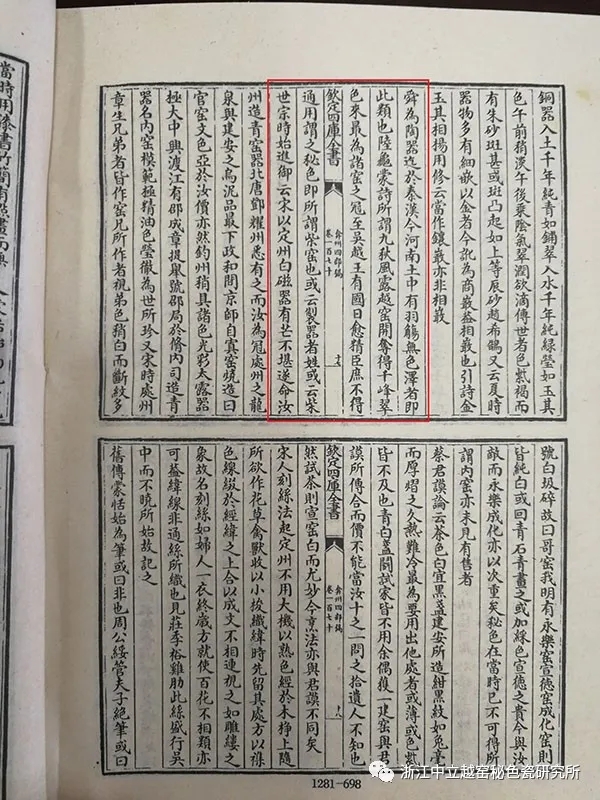 銅器入土千年純青如鋪翠入水千年純綠瑩如玉其
色午前稍淡午後乗陰氣翠潤欲滴傳世者色紫褐而
有朱砂斑甚或斑凸起如上等辰砂趙希鵠又云夏時
器物多有細嵌以金者今訛為商嵌葢相嵌也引詩金
玉其相楊用修云當作鑲嵌亦非相嵌
舜為陶器迄於秦漢今河南土中有羽觴無色澤者即
此類也陸龜蒙詩所謂九秋風露越窑開奪得千峰翠
色來最為諸窑之冠至吳越王有國日愈精臣庶不得
欽定四庫全書
弇州四部稿
卷一百七十
通用謂之秘色即所謂柴窑也或云製器者姓或云柴
世宗時始進御云宋以定州白磁器有芒不堪遂命汝
州造青窑器北唐鄧耀州悉有之而汝為冠處州之龍
泉與建安之烏泥品最下政和間京師自寘窑燒造曰
官窑文色亞於汝價亦然鈞州稍具諸色光彩太露器
極大中興渡江有邵成章提舉號邵局於修內司造青
器名內窑模範極精油色瑩徹為世所珍又宋時處州
章生兄弟者皆作窑兄所作者視弟色稍白而斷紋多
號白圾碎故曰哥窑我明有永樂窑宣徳窑成化窑則
皆純白或囘青石青畫之或加綵色宣徳之貴今與汝
敵而永樂成化亦以次重矣秘色在當時已不可得所
謂內窑亦未見有售者
蔡君謨論云茶色白宜黑盞建安所造紺黑紋如兎毫
而厚熁之久熱難冷最為要用出他處者或薄或色紫
皆不及也青白盞闘試家皆不用余偶獲一建窑與君
謨所傳合而價不能當汝十之一問之拾遺人不知也
欽定四庫全書
弇州四部稿
卷一百七十
然試茶則宣窑白而尤妙今烹法亦與君謨不同矣
宋人刻絲法起定州不用大機以熟色經於木棦上隨
所欲作花草禽獸收以小梭織緯時先留其處方以襍
色線綴於經緯之上合以成文不相連視之如雕鏤之
象故名刻絲如婦人一衣終歳方就使百花不相類亦
可葢緯線非通絲所織也見莊季裕雞肋此絲盛行吳
中而不曉所始故記之
舊傳蒙恬始為筆或曰非也周公綬管夫子絕筆或曰
1281-698
當時用漆書竹簡有
浙江中立越窑秘色瓷研究所